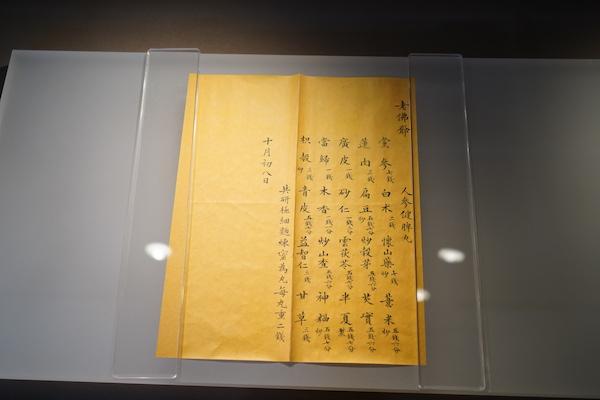 老佛爺
人參健脾丸
黨參七錢 白朮二錢 懷山藥炒七錢 薏米五錢六分
蓮肉三錢 扁豆炒 炒穀芽五錢六分 芡實五錢六分
廣皮一錢 砂仁 雲茯苓五錢六分 半夏製
當歸一錢 木香 炒山查五錢六分 神麯炒五錢七分
枳殼炒三錢 青皮五錢六分 益智仁二錢 甘草三錢
共研極細麵煉蜜為丸每丸重二錢
十月初八日